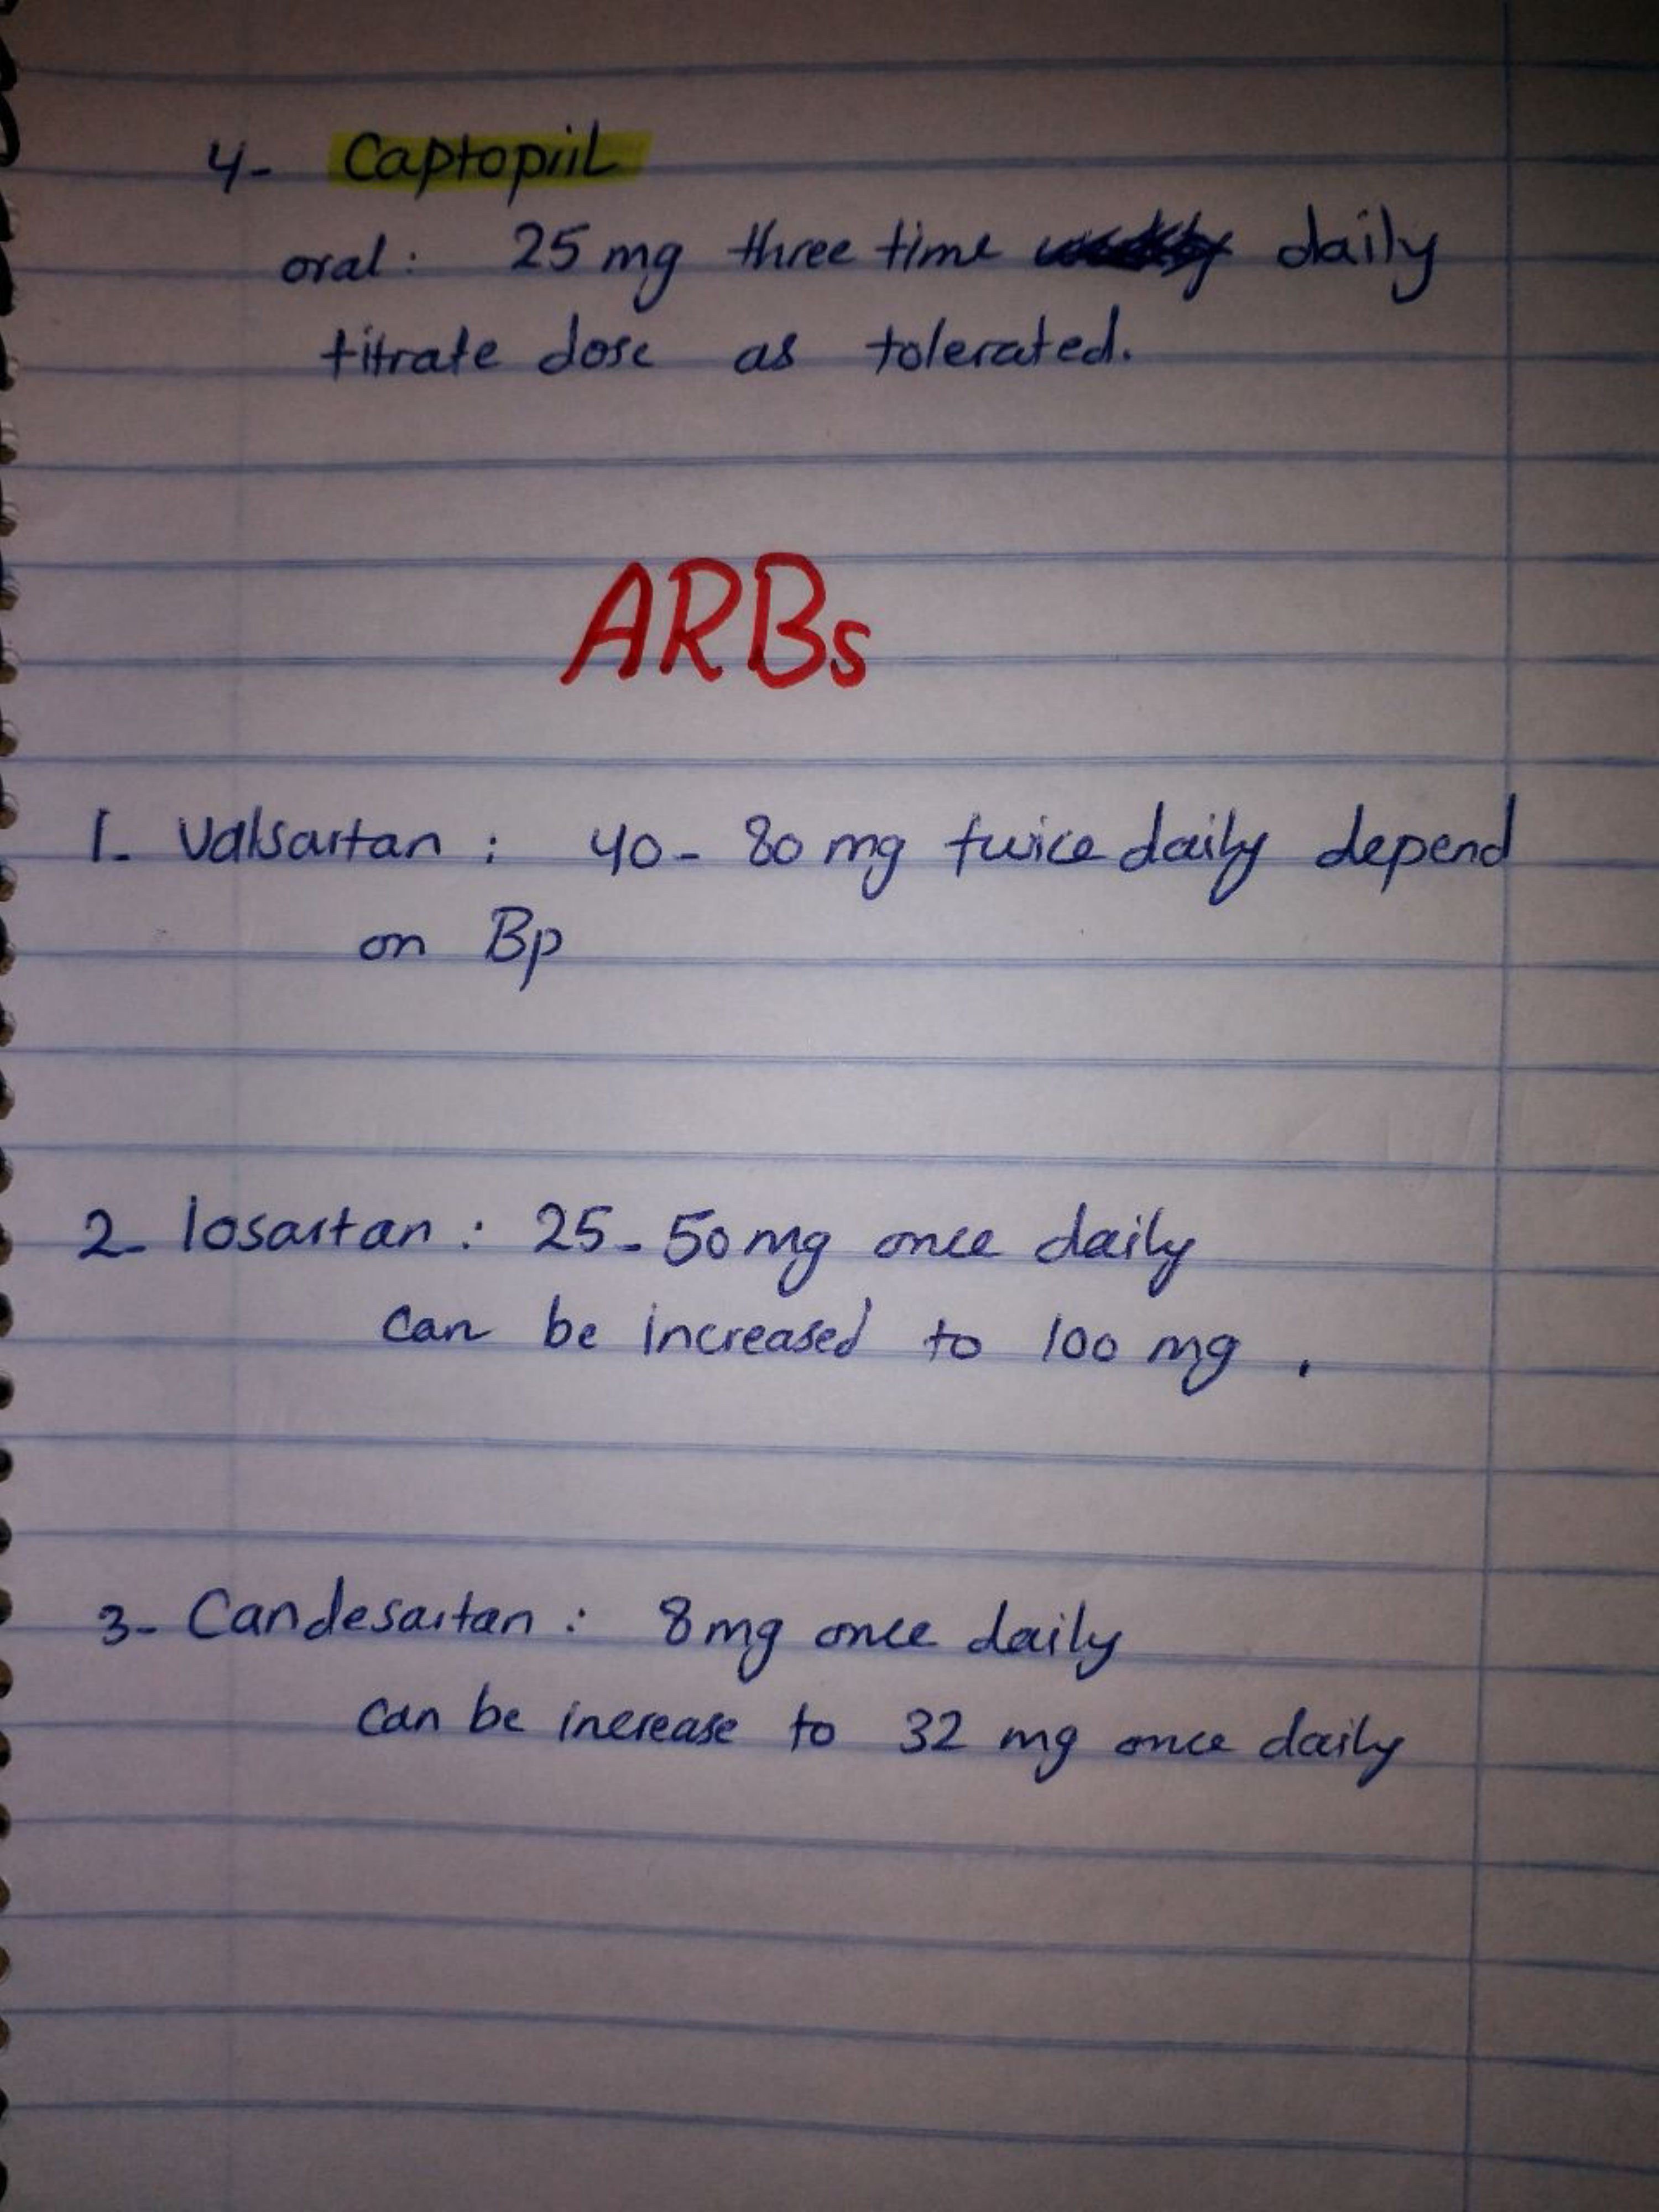 4- Captopril
oral: 25 mg three time daily
titrate dose as tolerated.
ARBs
1- Valsartan : 40 - 80 mg twice daily depend
on Bp
2- losartan : 25 - 50 mg once daily
can be increased to 100 mg .
3- Candesartan : 8 mg once daily
can be increase to 32 mg once daily